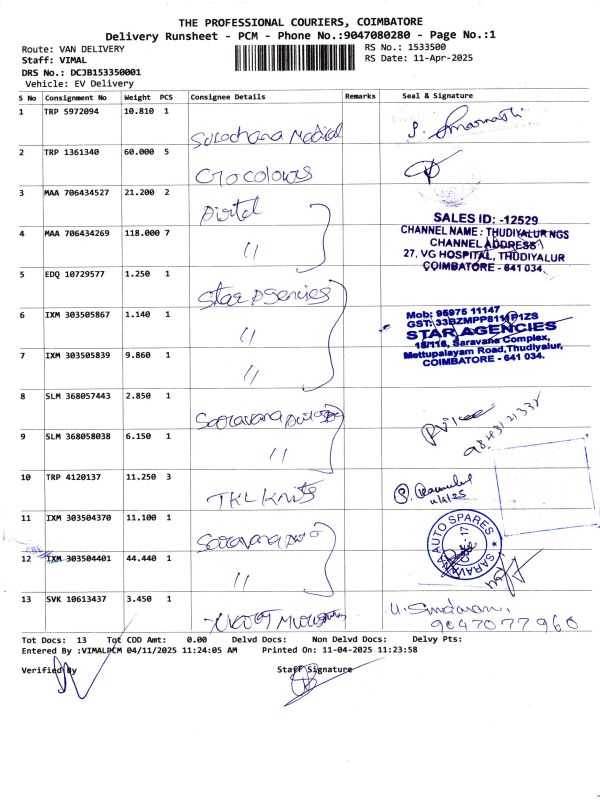 THE PROFESSIONAL COURIERS, COIMBATORE
Delivery Runsheet - PCM - Phone No.:9047080280 - Page No.:1
Route: VAN DELIVERY
RS No.: 1533500
Staff: VIMAL
RS Date: 11-Apr-2025
DRS No.: DCJB153350001
Vehicle: EV Delivery
S No Consignment No Weight PCS Consignee Details Remarks Seal & Signature
1 TRP 5972094 10.810 1 Medical
2 TRP 1361340 60.000 5
3 MAA 706434527 21.200 2
SALES ID: -12529
CHANNEL NAME : THUDIYALUR NGS
CHANNEL ADDRESS
27, VG HOSPITAL, THUDIYALUR
COIMBATORE - 641 034.
4 MAA 706434269 118.000 7 "
5 EDQ 10729577 1.250 1 Star Agencies
6 IXM 303505867 1.140 1 "
Mob: 95975 11147
STAR AGENCIES
18/116, Saravana Complex,
Mettupalayam Road, Thudiyalur,
COIMBATORE - 641 034.
7 IXM 303505839 9.860 1 "
8 SLM 368057443 2.850 1 Saravana
9 SLM 368058038 6.150 1 "
10 TRP 4120137 11.250 3 TKL Knits
11/4/25
11 IXM 303504370 11.100 1 Saravana auto
AUTO SPARES
12 IXM 303504401 44.440 1 "
13 SVK 10613437 3.450 1
U. Sundaram,
9047077960
Tot Docs: 13 Tot COD Amt: 0.00 Delvd Docs: Non Delvd Docs: Delvy Pts:
Entered By :VIMALPCM 04/11/2025 11:24:05 AM Printed On: 11-04-2025 11:23:58
Verified By
Staff Signature